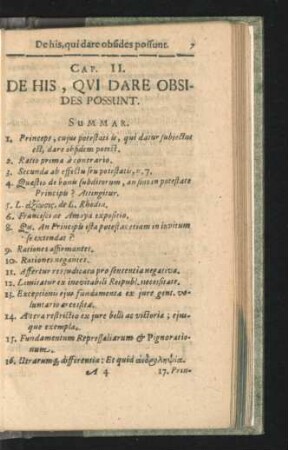 De his, qui dare obsides possunt. 7
CAP. II.
DE HIS, QVI DARE OBSI-
DES POSSUNT.
SUMMAR.
1. Princeps, cujus potestati is, qui datur subjectus
est, dare obsidem potest.
2. Ratio prima à contrario.
3. Secunda ab effectu seu potestatis, n. 7.
4. Quæstio de bonis subditorum, an sint in potestate
Principis? Attingitur.
5. L. ἀξίωσις. de L. Rhodia.
6. Francisci de Amoya expositio.
8. Qu. An Principis ista potestas etiam in invitum
se extendat?
9. Rationes affirmantes.
10. Rationes negantes.
11. Affertur res judicata pro sententia negativa.
12. Limitatur ex inevitabili Reipubl. necessitate.
13. Exceptionis ejus fundamenta ex jure gent. vo-
luntario arcessita.
14. Altera restrictio ex jure belli ac victoria; ejus-
que exempla.
15. Fundamentum Repressaliarum & Pignoratio-
num.
16. Utrarumq; differentia: Et quid ἀνδροληψία.
A 4 17. Prin-